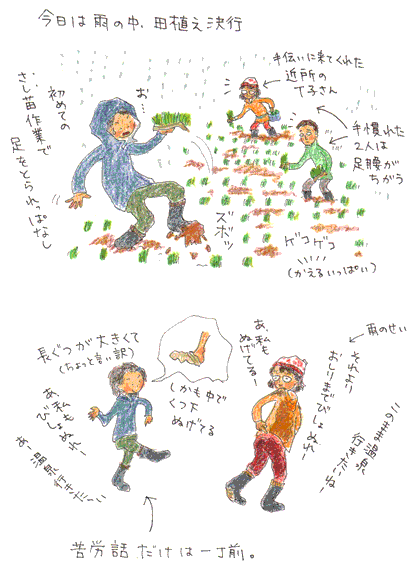 今日は雨の中、田植え決行
手伝いに来てくれた
近所の
T子さん
手慣れた
2人は
足腰が
ちがう
お…
初めての
さし苗作業で
足をとられっぱなし
ズボッ
ゲコゲコ
(かえるいっぱい)
長ぐつが大きくて
(ちょっと言い訳)
しかも中で
くつ下
ぬげてる
あ、私も
ぬげてるー
雨のせい
それよー
おしりまでびしょぬれー
このまま温泉
行きたいなー
あ、私も
びしょぬれー
あー温泉
行きたーい
苦労話だけは一丁前。